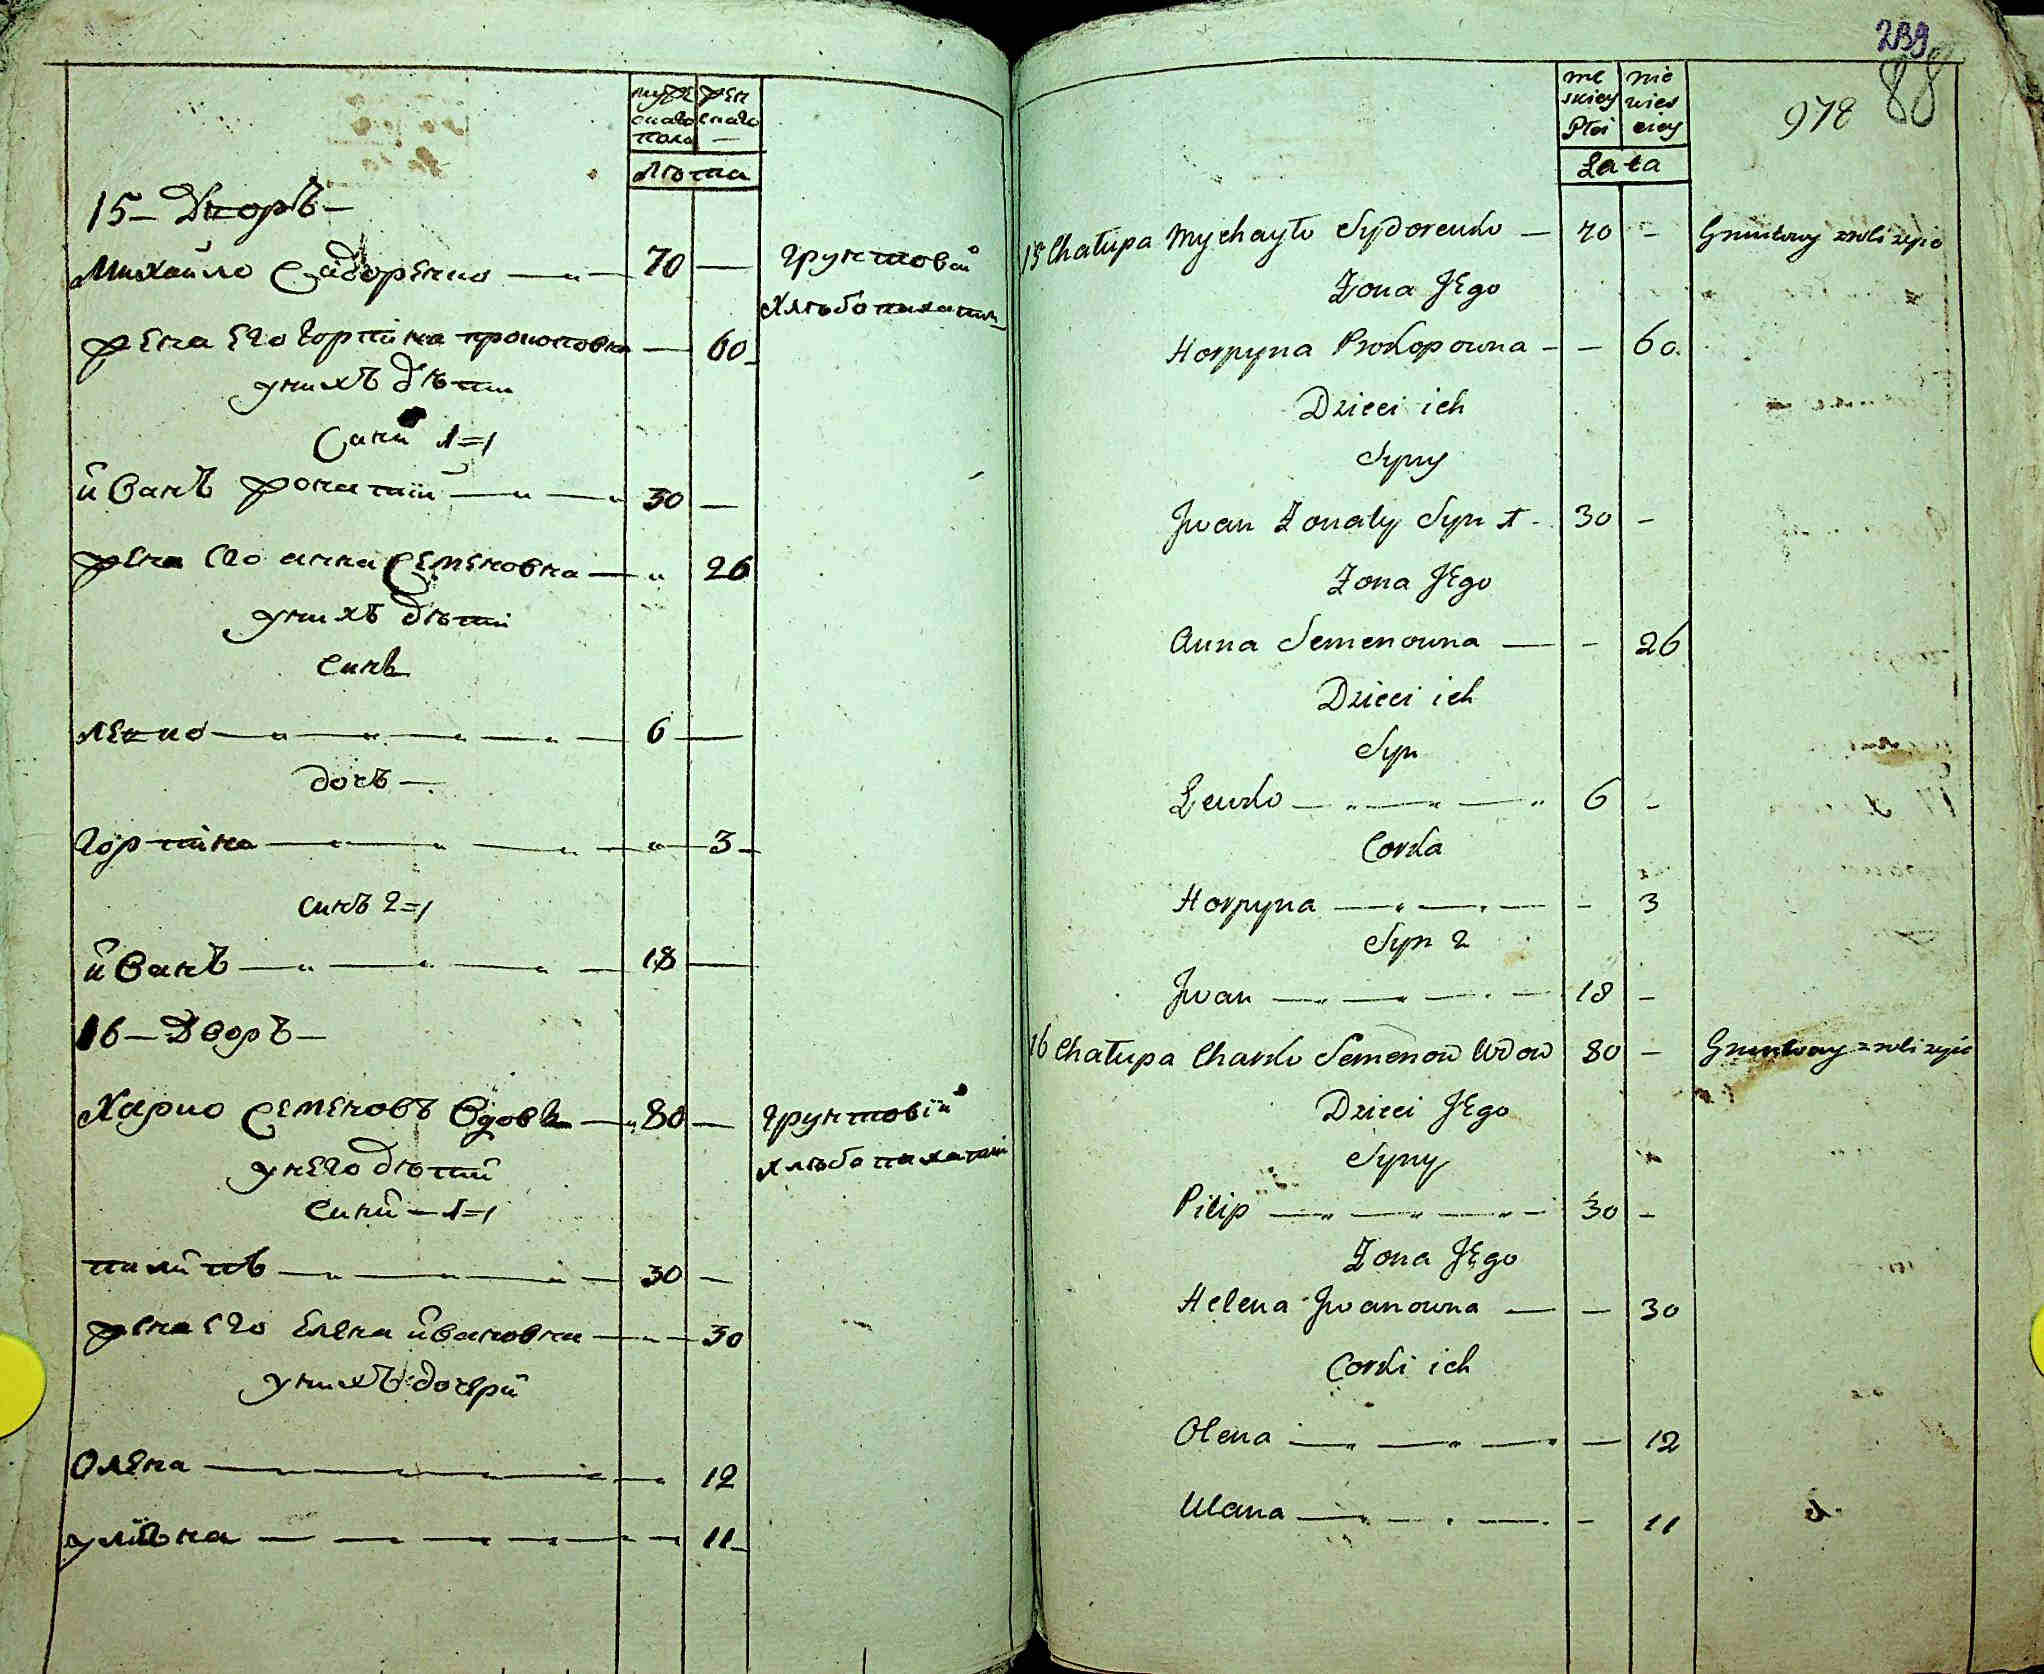 муже
скаго
пола
жен
скаго
Лѣта
15 - Дворъ -
Михайло Сидоренко 70 -
Грунтовий
Хлѣбопахатни
жена его Горпина Прокоповна - 60
у нихъ дѣти
Сини 1=1
Иванъ жонатій 30 -
жена его анна Семеновна 26
у нихъ дѣти
Синъ
Левко 6 -
дочь -
Горпина 3
синъ 2=1
Иванъ 18 -
16 - Дворъ -
Харко Семеновъ Вдовъ 80 -
Грунтовій
Хлѣбопахатній
у него дѣти
Сини - 1=1
Пилипъ 30 -
жена его Елена Ивановна 30
у нихъ дочери
Олена 12
Уляна 11
239
88
978
mę
skiey
Płci
nie
wies
ciey
Lata
15 Chałupa Mychayło Sydorenko - 70 - Gruntowy z roli żyie
Zona Jego
Horpyna Prokopowna - - 60
Dzieci ich
Syny
Jwan Zonaty Syn 1 - 30 -
Zona Jego
Anna Semenowna - - 26
Dzieci ich
Syn
Lewko 6 -
Corka
Horpyna - 3
Syn 2
Jwan 18 -
16 Chałupa Charko Semenow Wdow 80 - Gruntowy z roli żyie
Dzieci Jego
Syny
Pilip 30 -
Zona Jego
Helena Jwanowna - - 30
Corki ich
Olena - 12
Ulana - 11